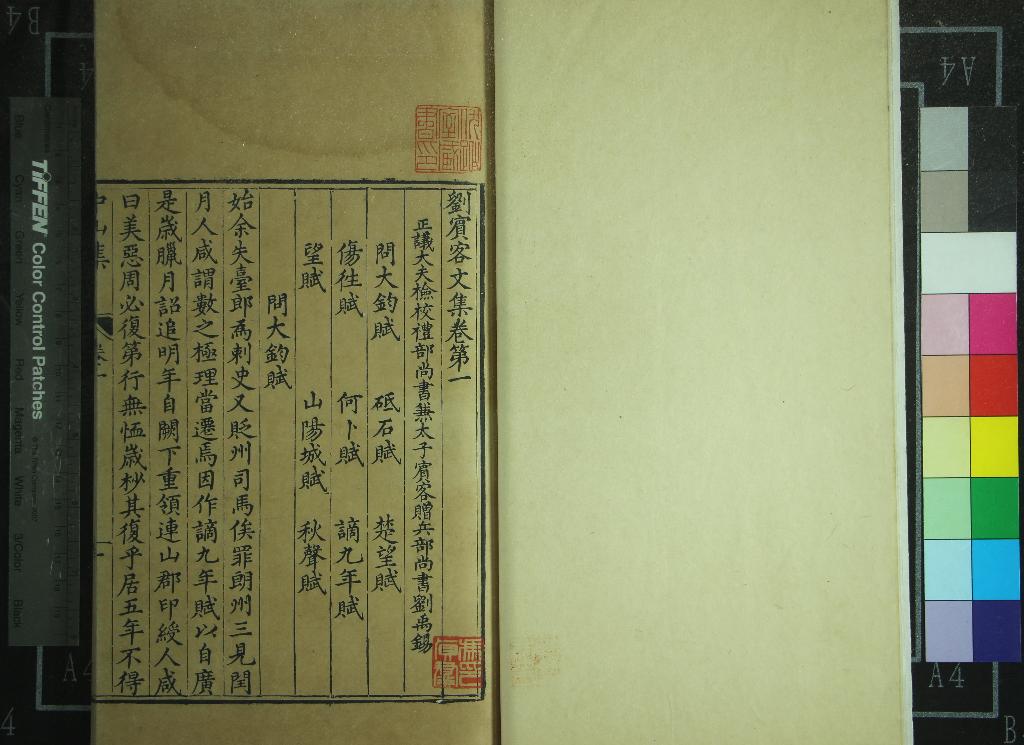 劉賓客文集卷第一
正議大夫檢校禮部尚書兼太子賓客贈兵部尚書劉禹錫
問大鈞賦 砥石賦 楚望賦
傷往賦 何卜賦 謫九年賦
望賦 山陽城賦 秋聲賦
問大鈞賦
始余失臺郎爲刺史又貶州司馬俟罪朗州三見閏
月人咸謂數之極理當遷焉因作謫九年賦以自廣
是歲臘月詔追明年自闕下重領連山郡印綬人咸
曰美惡周必復第行無恤歲杪其復乎居五年不得
中山集 卷一
一
TIFFEN Color Control Patches
Blue Cyan Green Yellow Red Magenta White 3/Color Black
A4
A4
A4
B4
4
B